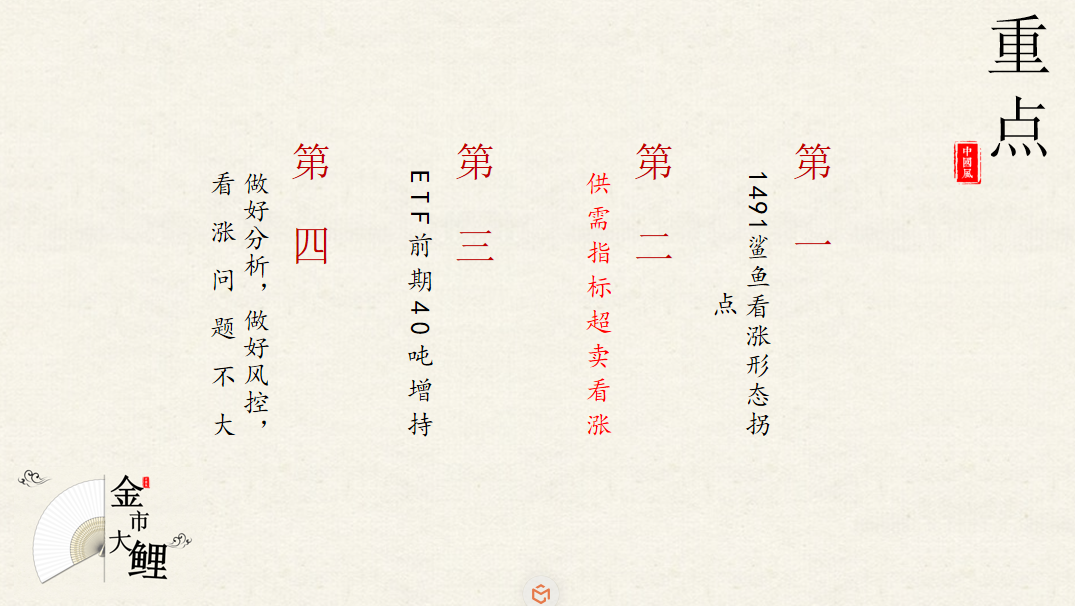 重点
中國風
第一
1491鲨鱼看涨形态拐
点
第二
供需指标超卖看涨
第三
ETF前期40吨增持
第四
做好分析，做好风控，
看涨问题不大
金市大鲤